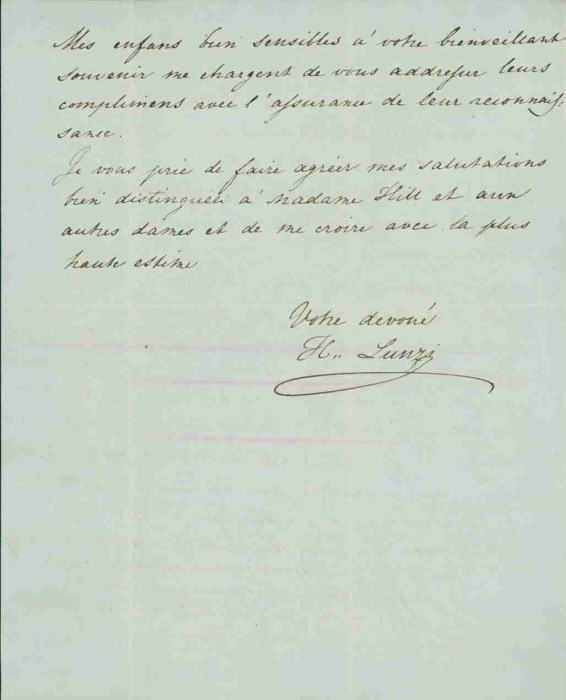 Mes enfans bien sensilles à votre bienveillant
souvenir me chargent de vous addresser leurs
complimens avec l'assurance de leur reconnais=
sance.
Je vous prie de faire agréer mes salutations
bien distinguées à Madame Hill et aux
autres dames et de me croire avec la plus
haute estime
Votre devoué
H.. Lunzi